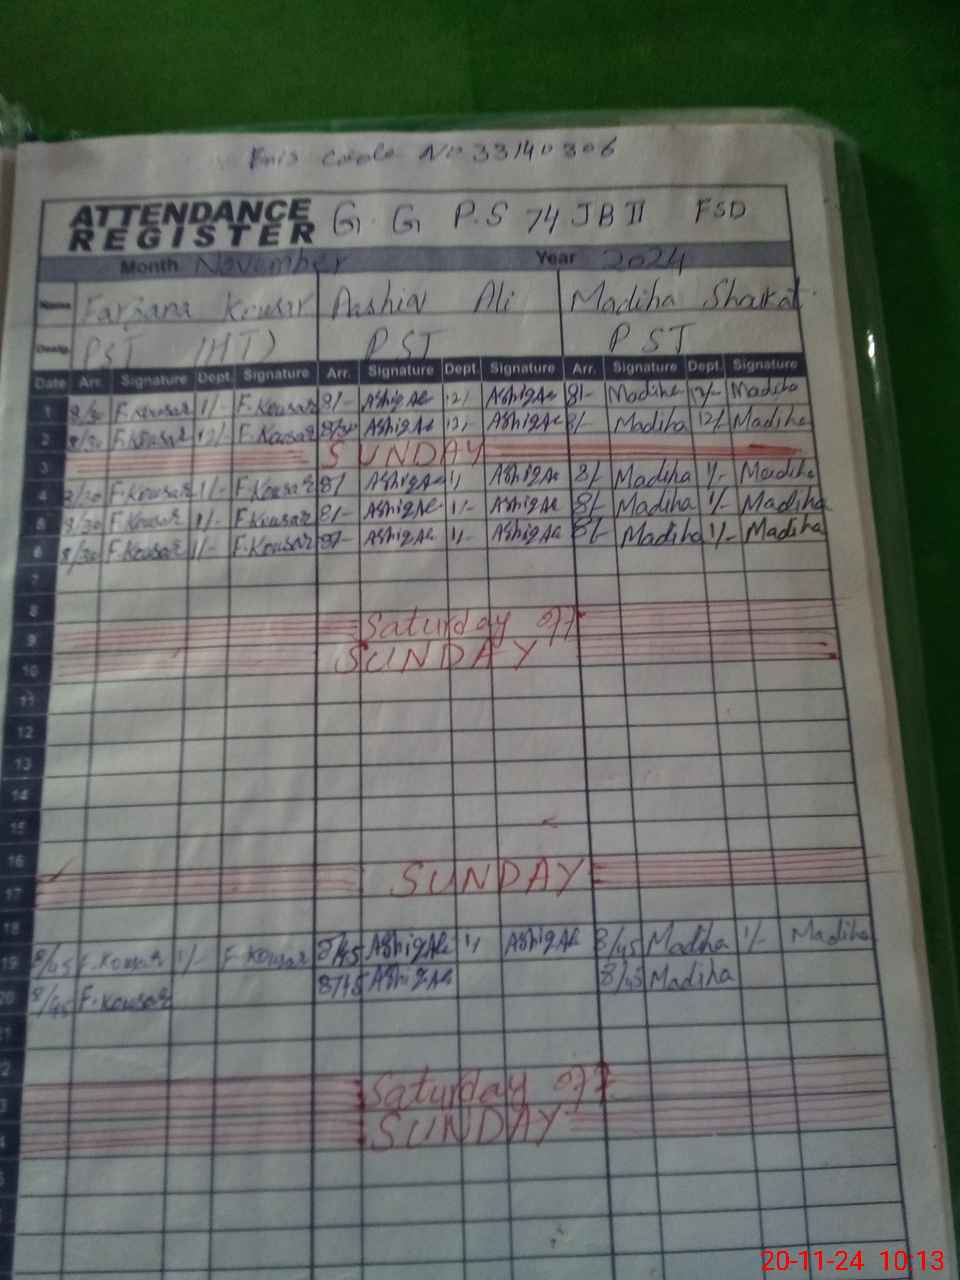 Emis code No 33140306
ATTENDANCE REGISTER G. G P.S 74 JB II FSD
Month November Year 2024
Name Farzana Kousar Aashiq Ali Madiha Shaukat
Desig. PST (HT) PST PST
Date Arr. Signature Dept. Signature Arr. Signature Dept. Signature Arr. Signature Dept. Signature
1 8/30 F.Kousar 1/- F.Kousar 8/- AshiqAli 12/ AshiqAli 8/- Madiha 12/- Madiha
2 8/30 F.Kousar 12/- F.Kousar 8/30 AshiqAli 12/ AshiqAli 8/- Madiha 12/- Madiha
3 SUNDAY
4 8/30 F.Kousar 1/- F.Kousar 8/ AshiqAli 1/ AshiqAli 8/ Madiha 1/- Madiha
5 8/30 F.Kousar 1/- F.Kousar 8/- AshiqAli 1/- AshiqAli 8/- Madiha 1/- Madiha
6 8/30 F.Kousar 1/- F.Kousar 8/- AshiqAli 1/- AshiqAli 8/- Madiha 1/- Madiha
7
8
9 Saturday off
10 SUNDAY
11
12
13
14
15
16
17 SUNDAY
18
19 8/45 F.Kousar 1/- F.Kousar 8/45 AshiqAli 1/ AshiqAli 8/45 Madiha 1/- Madiha
20 8/45 F.Kousar 8/45 AshiqAli 8/45 Madiha
21
2
3 Saturday off
4 SUNDAY
5
20-11-24 10:13